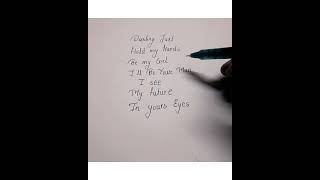 Darling Just
Hold my hands
Be my Girl
I'll Be Your Man
I see
My future
In yours Eyes